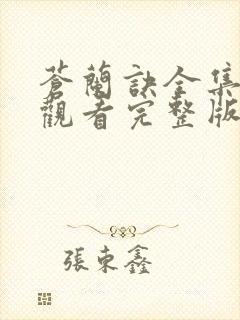 蒼蘭訣全集
觀看完整版
張東鑫